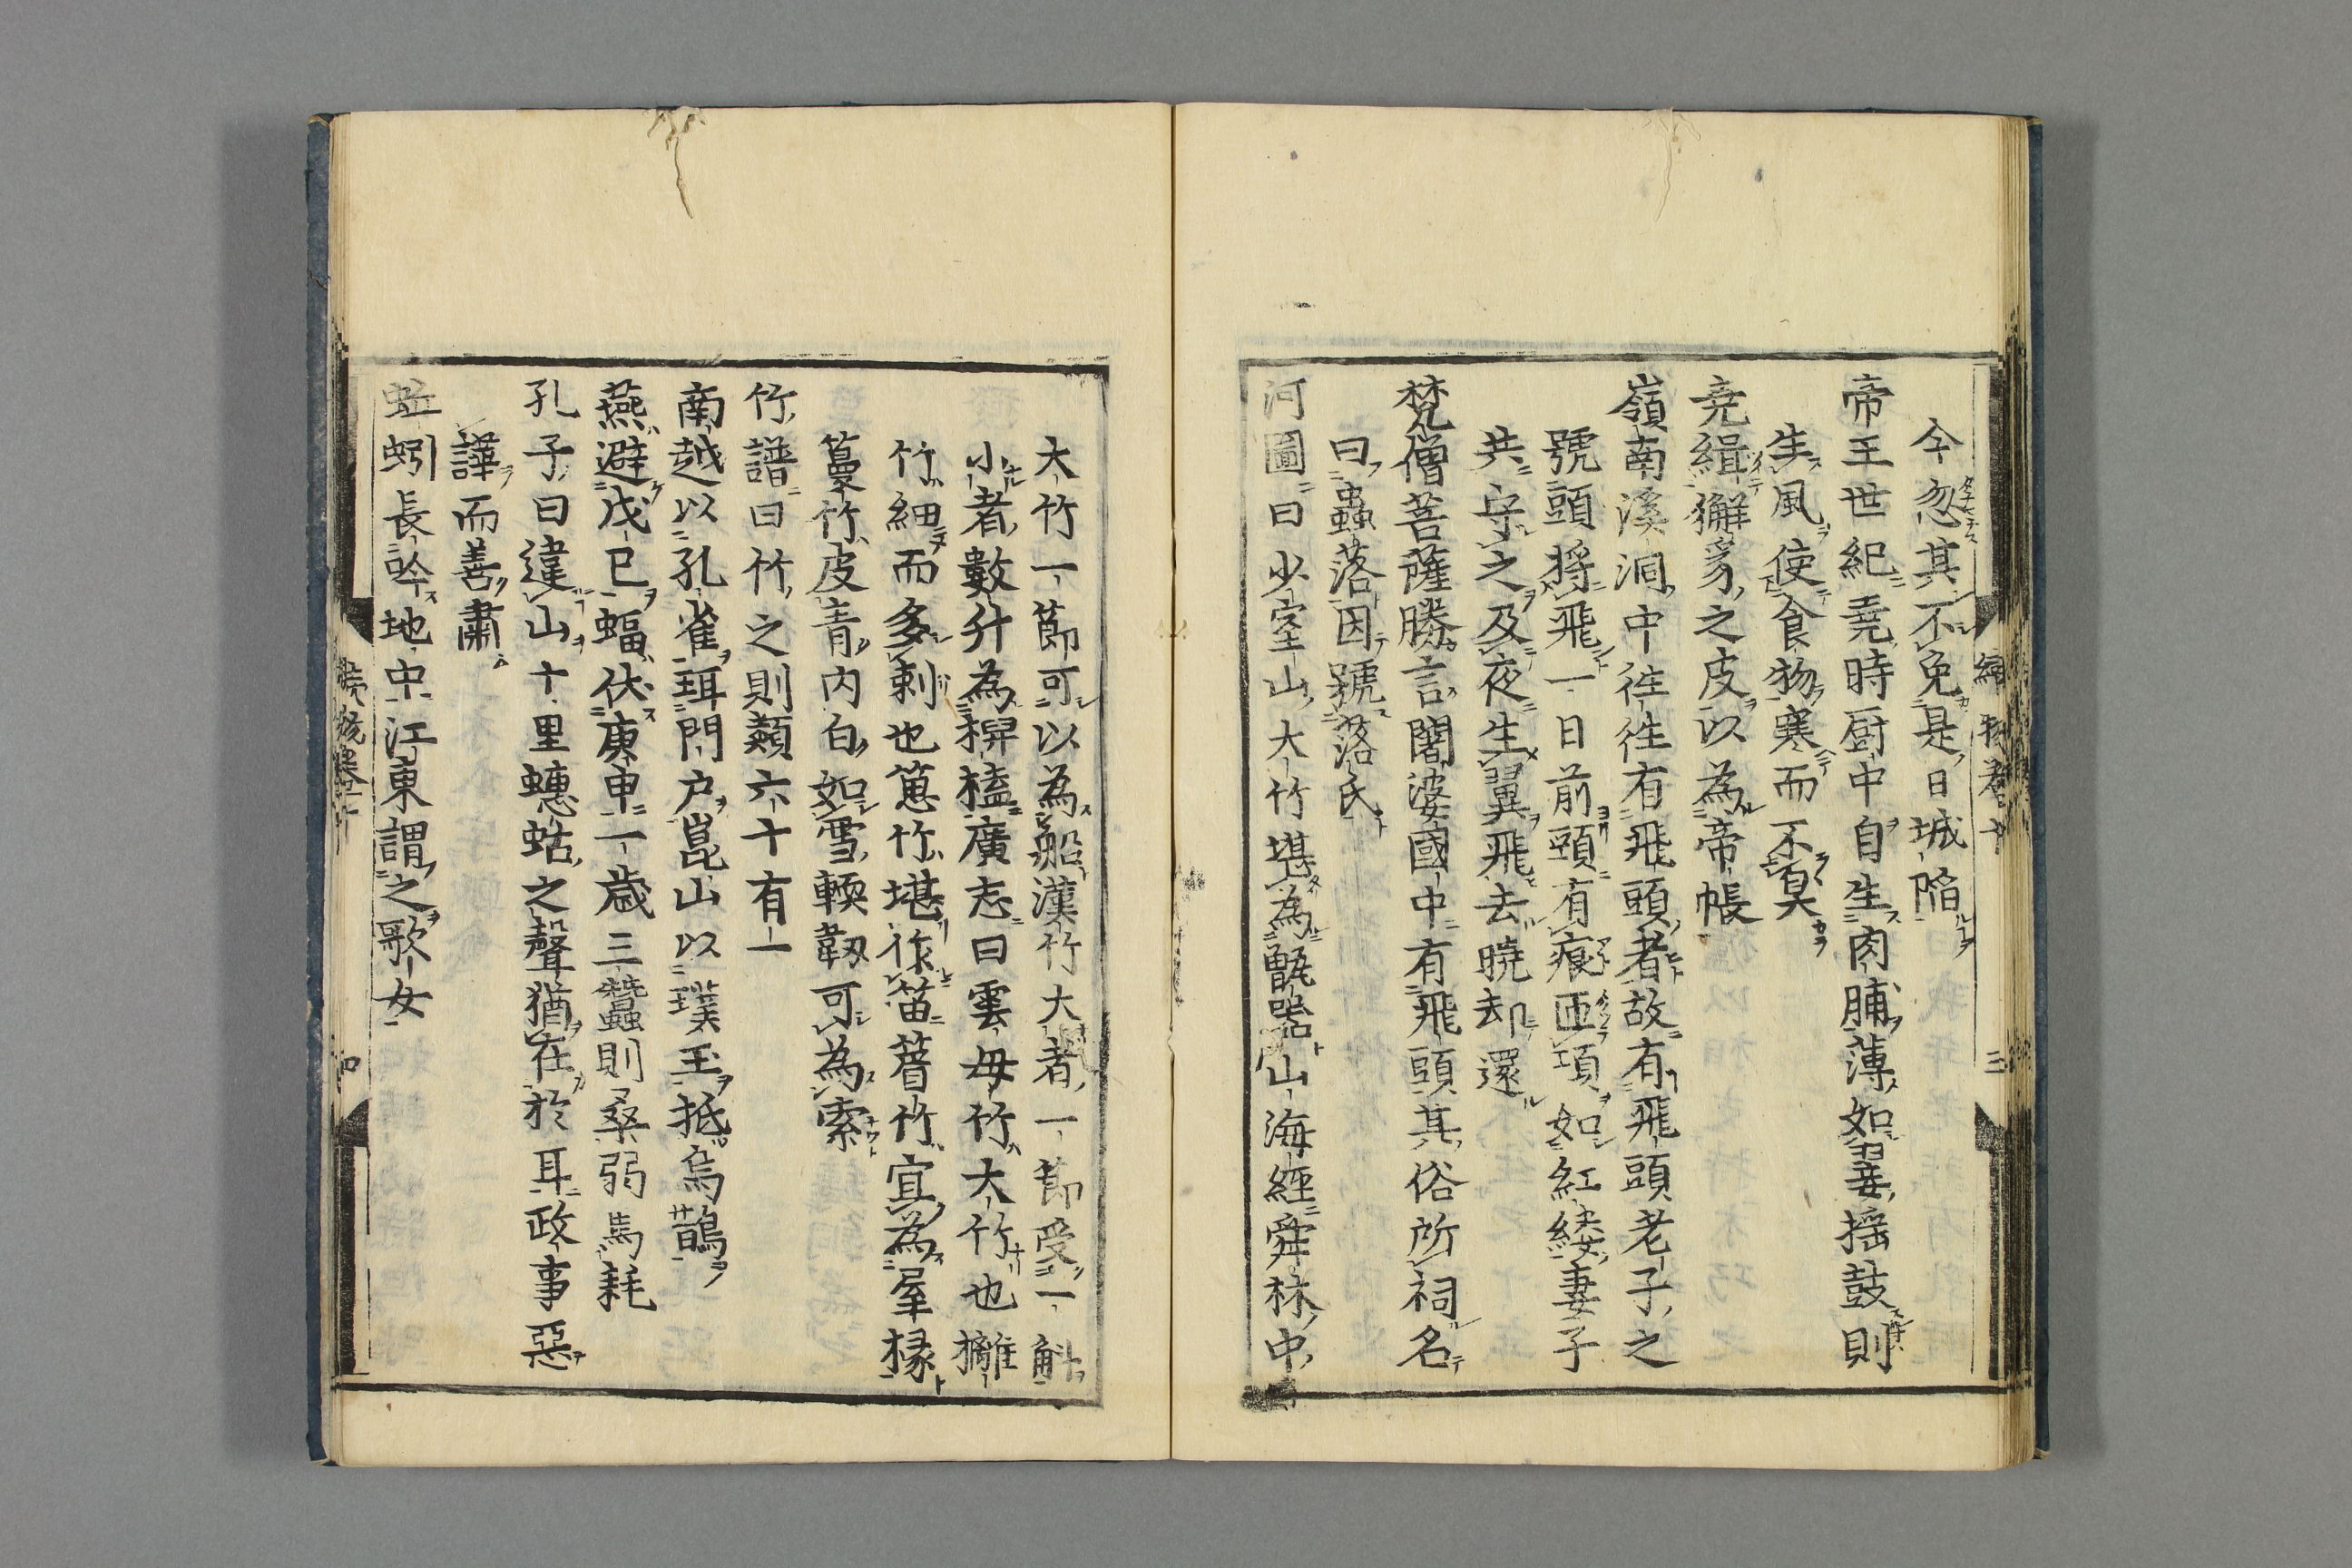 今忽其不免是日城陷
帝王世紀堯時厨中自生肉脯薄如翣揺鼓則
生風使食物寒而不臭
堯緝獬豸之皮以為帝帳
嶺南溪洞中徃徃有飛頭者故有飛頭老子之
號頭將飛一日前頸有痕匝項如紅縷妻子
共守之及夜生翼飛去曉却還
梵僧菩薩勝言闍婆國中有飛頭其俗所祠名
曰蟲落因號落氏
河圖曰少室山大竹堪為甑器山海經舜林中
大竹一節可以為船漢竹大者一節受一斛
小者數升為椑榼廣志曰雲母竹大竹也
竹細而多刺也䓗竹堪作笛䈞竹宜為屋椽
蔓竹皮青内白如雪輭韌可為索
竹譜曰竹之則類六十有一
南越以孔雀珥門户崑山以璞玉抵烏鵲
燕避戊巳蝠伏庚申一歳三蠶則桑弱馬耗
孔子曰違山十里蟪蛄之聲猶在於耳政事惡
譁而善肅
蚯蚓長吟地中江東謂之歌女